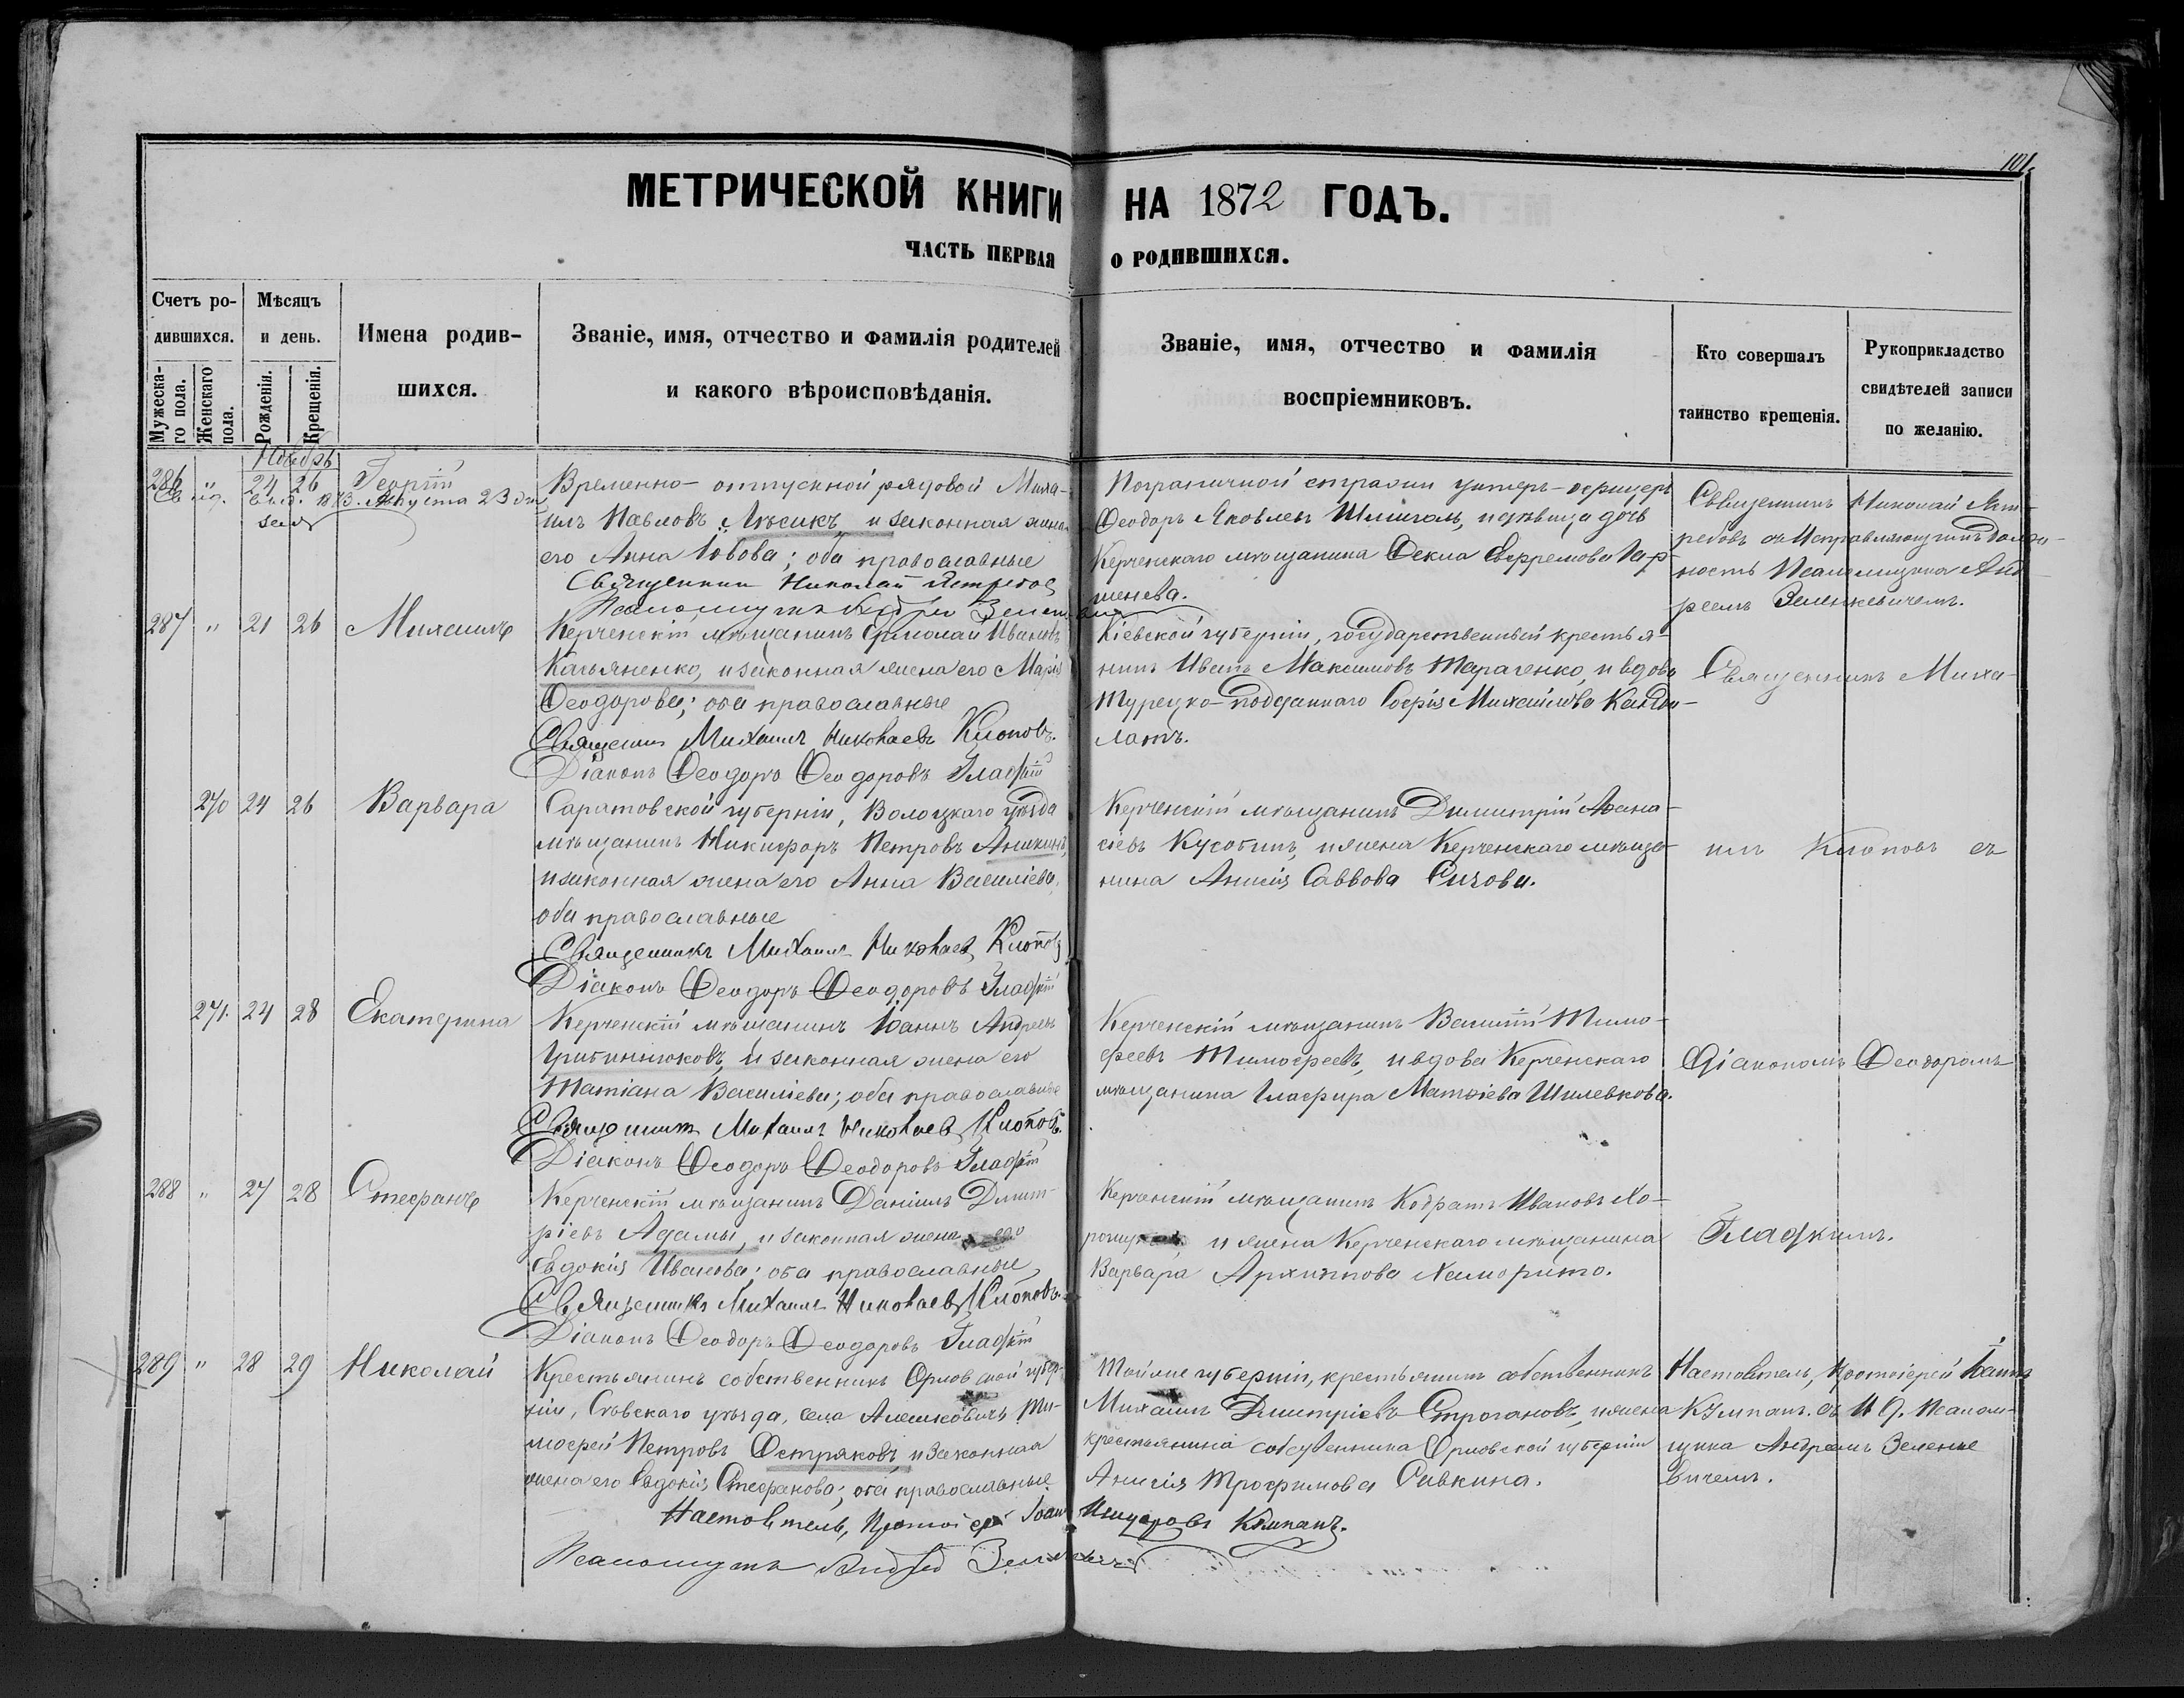 101.
МЕТРИЧЕСКОЙ КНИГИ НА 1872 ГОДЪ.
ЧАСТЬ ПЕРВАЯ О РОДИВШИХСЯ.
Счетъ родившихся.
Мужескаго пола.
Женскаго пола.
Мѣсяцъ и день.
Рожденія.
Крещенія.
Имена родившихся.
Званіе, имя, отчество и фамилія родителей
и какого вѣроисповѣданія.
Званіе, имя, отчество и фамилія
воспріемниковъ.
Кто совершалъ
таинство крещенія.
Рукоприкладство
свидѣтелей записи
по желанію.
Ноябрь
286 " 24 26 Георгій
1873. Августа 23 дня
Временно-отпускной рядовой Миха-
илъ Павловъ Лѣсикъ, и законная жена
его Анна Іовова; оба православные
Священникъ Николай Ястребовъ
Псаломщикъ Андрей
Пограничной стражи унтеръ-офицеръ
Феодоръ Яковлевъ и дѣвица дочь
Керченскаго мѣщанина Фекла Евфремова Пар-
менева.
Священникъ Николай Яст-
ребовъ съ Исправляющимъ долж-
ность Псаломщика Анд-
реемъ Зеленкевичемъ.
287 " 21 26 Михаилъ
Керченскій мѣщанинъ Ермолай Ивановъ
Касьяненко, и законная жена его Марія
Феодорова; оба православные
Священникъ Михаилъ Николаевъ Клоповъ.
Діаконъ Феодоръ Феодоровъ Гладкій
Кіевской губерніи, государственный крестья-
нинъ Иванъ Максимовъ Тараченко, и вдова
Турецко-подданнаго Софія Михайлова Кандо-
латъ.
Священникъ Миха-
270 24 26 Варвара
Саратовской губерніи, Волоцкаго уѣзда
мѣщанинъ Никифоръ Петровъ Аникинъ,
и законная жена его Анна Васильева,
оба православные
Священникъ Михаилъ Николаевъ Клоповъ
Діаконъ Феодоръ Феодоровъ Гладкій
Керченскій мѣщанинъ Димитрій Афана-
сіевъ и жена Керченскаго мѣща-
нина Анисія Саввова Сизова.
илъ Клоповъ съ
271. 24 28 Екатерина
Керченскій мѣщанинъ Іоаннъ Андреевъ
и законная жена его
Татіана Васильева; оба православные
Священникъ Михаилъ Николаевъ Клоповъ.
Діаконъ Феодоръ Феодоровъ Гладкій
Керченскій мѣщанинъ Василій Тимо-
феевъ Тимофеевъ, и вдова Керченскаго
мѣщанина Глафира Матфіева Шилевкова.
Діакономъ Феодоромъ
288 " 27 28 Стефанъ
Керченскій мѣщанинъ Даніилъ Дмит-
ріевъ Адамы, и законная жена его
Евдокія Иванова; оба православные,
Священникъ Михаилъ Николаевъ Клоповъ.
Діаконъ Феодоръ Феодоровъ Гладкій
Керченскій мѣщанинъ Кодратъ Ивановъ
и жена Керченскаго мѣщанина
Варвара Архиппова
Гладкимъ.
289 " 28 29 Николай
Крестьянинъ собственникъ Орловской губер-
ніи, Сѣвскаго уѣзда, села Алешковичь Ти-
мофей Петровъ Остряковъ, и законная
жена его Евдокія Стефанова; оба православные.
Настоятель, Протоіерей Іоаннъ Кумпанъ.
Псаломщикъ Андрей
Тойже губерніи, крестьянинъ собственникъ
Михаилъ Дмитріевъ Строгановъ, и жена
крестьянина собственника Орловской губерніи
Анисія Трофимова Савкина.
Настоятель, Протоіерей Іоаннъ
Кумпанъ. съ И. д. Псалом-
щика Андреемъ Зеленке
вичемъ.